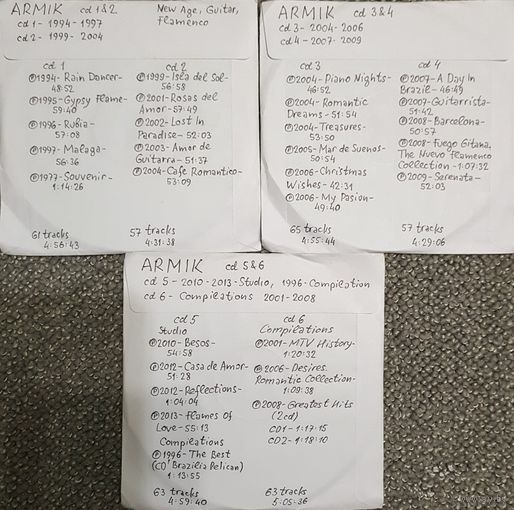 ARMIK cd 1&2
New Age, Guitar,
flamenco
cd 1 - 1994-1997
cd 2 - 1999-2004
cd 1
℗1994-Rain Dancer-
48:52
℗1995-Gypsy Flame-
59:40
℗1996-Rubia-
57:08
℗1997-Malaga-
56:36
℗1977-Souvenir-
1:14:26
61 tracks
4:56:43
cd 2
℗1999-Isla del Sol-
56:58
℗2001-Rosas del
Amor-57:49
℗2002-Lost In
Paradise-52:03
℗2003-Amor de
Guitarra-51:37
℗2004-Cafe Romantico-
53:09
57 tracks
4:31:38
ARMIK cd 3&4
cd 3-2004-2006
cd 4-2007-2009
cd 3
℗2004-Piano Nights-
46:52
℗2004-Romantic
Dreams-51:54
℗2004-Treasures-
53:50
℗2005-Mar de Suenos-
50:54
℗2006-Christmas
Wishes-42:31
℗2006-My Pasion-
49:40
65 tracks
4:55:44
cd 4
℗2007-A Day In
Brazil-46:49
℗2007-Guitarrista-
51:42
℗2008-Barcelona-
50:57
℗2008-Fuego Gitana.
The Nuevo Flamenco
Collection-1:07:32
℗2009-Serenata-
52:03
57 tracks
4:29:06
ARMIK cd 5&6
cd 5-2010-2013-Studio, 1996-Compilation
cd 6-Compilations 2001-2008
cd 5
Studio
℗2010-Besos-
54:58
℗2012-Casa de Amor-
51:28
℗2012-Reflections-
1:04:04
℗2013-Flames Of
Love-55:13
Compilations
℗1996-The Best
(CD Brazilia Pelican)
1:13:55
63 tracks
4:59:40
cd 6
Compilations
℗2001-MTV History-
1:20:32
℗2006-Desires.
Romantic Collection-
1:09:38
℗2008-Greatest Hits
(2cd)
CD1-1:17:15
CD2-1:18:10
63 tracks
5:05:36